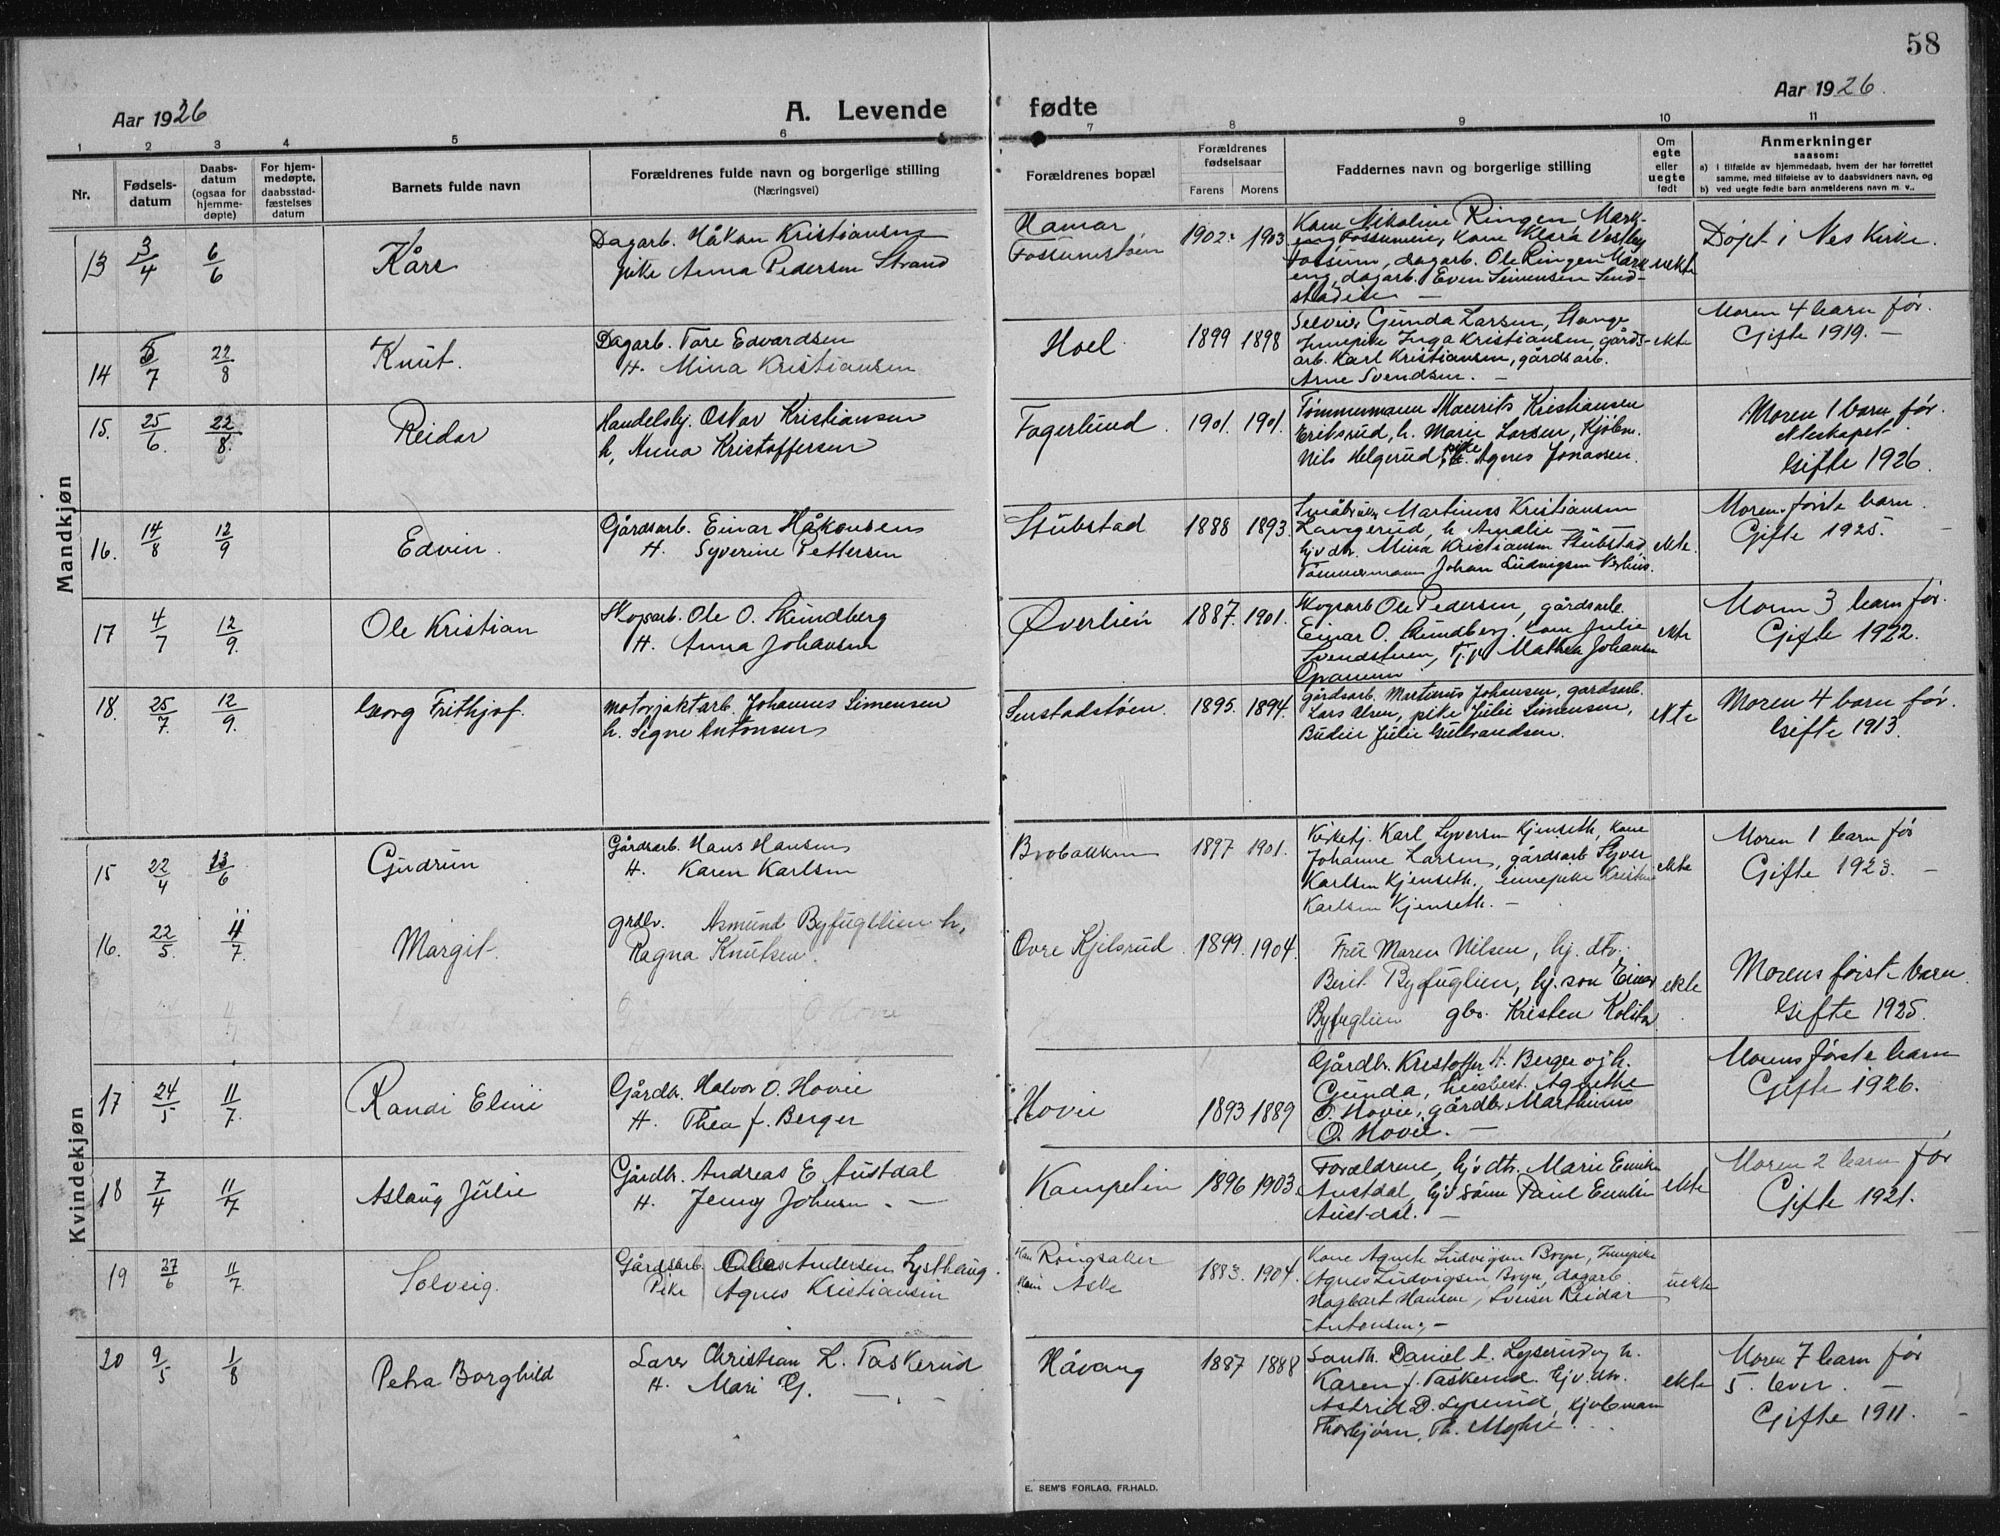 58
Aar 1926
A. Levende
fødte
Aar 1926.
1 2 3 4 5 6 7 8 9 10 11
Nr.
Fødsels-
datum
Daabs-
datum
(ogsaa for
hjemme-
døpte)
For hjem-
medøpte,
daabsstad-
fæstelses
datum
Barnets fulde navn
Forældrenes fulde navn og borgerlige stilling
(Næringsvei)
Forældrenes bopæl
Forældrenes
fødselsaar
Farens Morens
Faddernes navn og borgerlige stilling
Om
egte
eller
uegte
født
Anmerkninger
saasom:
a) i tilfælde av hjemmedaab, hvem der har forrettet
samme, med tilføielse av to daabsvidners navn, og
b) ved uegte fødte barn anmelderens navn m. v..
Mandkjøn
13 3/4 6/6 Kåre
Dagarb. Håkon Kristiansen
pike Anna Pedersen Strand
Hamar
Fossumstøen
1902. 1903
Kone Nikoline Ringen Mark-
eng Fossumeie, Kone Klara Vestby
Fossum, dagarb. Ole Ringen Mark
eng, dagarb. Even Simensen Send-
stadeie —
uekte
Døpt i Nes Kirke.
14 5/7 22/8 Knut.
Dagarb. Tore Edvardsen
H. Mina Kristiansen
Hoel
1899 1898
Gunda Larsen, Stange
Innepike Inga Kristiansen, gårds-
arb. Karl Kristiansen, gårdsarb.
Arne Svendsen. —
ekte
Moren 4 barn før.
Gifte 1919. —
15. 25/6. 22/8. Reidar
Handelsbj. Oskar Kristiansen
h, Anna Kristoffersen
Fagerlund.
1901. 1901.
Tømmermann Maurits Kristiansen
Eriksrud, h. Marie Larsen, Kjøbm.
Nils Helgerud, pike Agnes Jonassen.
Moren 1 barn før
ekteskapet.
Gifte 1926.
16. 14/8 12/9 Edvin.
Gårdsarb. Einar Håkonsen
H. Syverine Pettersen
Stubstad
1888 1893
Småbruker Martinus Kristiansen
Langerud, h Amalie
hjv dtr. Mina Kristiansen Stubstad,
Tømmermann Johan Ludvigsen
ekte.
Moren første barn.
Gifte 1925. —
17 4/7 12/9. Ole Kristian
Skogsarb. Ole O. Skundberg
H. Anna Johansen
Øverlien
1887. 1901.
Skogsarb Ole Pedersen, gårdsarb.
Einar O. Skundberg. Kone Julie
Svendstuen, Mathea Johansen
ekte
Moren 3 barn før.
Gifte 1922.
18. 25/7. 12/9. Georg Frithjof.
motorjaktarb. Johannes Simensen
h. Signe Antonsen
Senstadstøen.
1895. 1894.
gårdsarb. Martinus Johansen, gardsarb.
Lars Olsen, pike Julie Simensen,
Budeie Julie Gulbrandsen.
ekte
Moren 4 barn før.
Gifte 1913.
Kvindekjøn
15 22/4 13/6 Gudrun
Gårdsarb. Hans Hansen
H. Karen Karlsen
Brobakken
1897 1901.
Kirketj. Karl Syversen Kjenseth, Kone
Johanne Larsen, gårdsarb Syver
Karlsen Kjenseth, innepike Kristine
Karlsen Kjenseth. —
ekte
Moren 1 barn før
Gifte 1923. —
16. 22/5. 11/7. Margit.
grdbr. Asmund Byfuglien h,
Ragna Knutsen.
Øvre Kjelsrud.
1899. 1904.
Fru Maren Nilsen, hj. dtr.
Berit Byfuglien, hj. søn Einar
Byfuglien gbr. Kristen Kolstad
ekte
Morens første barn.
Gifte 1925.
17 24/5 11/7. Randi Eline
Gårdbr. Halvor O. Hovie
H. Thea J. Berger
Hovie
1893 1889
Gårdbr. Kristoffer H. Berger og h.
Gunda, husbest. Agnethe
O. Hovie, gårdbr. Marthinus
O. Hovie. —
Morens første barn
Gifte 1926.
18 7/4 11/7 Aslaug Julie
Gårdbr. Andreas E Austdal
H. Jenny Johnsen. —
Kampelien
1896 1903
Forældrene, hjv dtr. Marie Emilie
Austdal, hjv sønn Paul Emilin
Austdal. —
ekte
Moren 2 barn før
Gifte 1921.
19 27/6 11/7. Solveig.
Gårdsarb. Ole Andersen Lysthaug.
Pike Agnes Kristiansen
Han Ringsaker
Hun Aske
1883. 1904.
Kone Agnete Ludvigsen Bryn, Innepike
Agnes Ludvigsen Bryn, dagarb.
Hagbart Hansen, Reidar
Antonsen. —
uekte
20 9/5 1/8 Petra Borghild
Lærer Christian L. Taskerud
H. Mari G. —
Håvang
1887 1888
Landh. Daniel A. Lyserud og h.
Karen J. Taskerud. hjv. dtr.
Astrid D. Lyserud, Kjøbmann
Thorbjørn Th. Moshie.
ekte
Moren 7 barn før
5. lever. —
Gifte 1911. —
E. SEM'S FORLAG, FR.HALD.